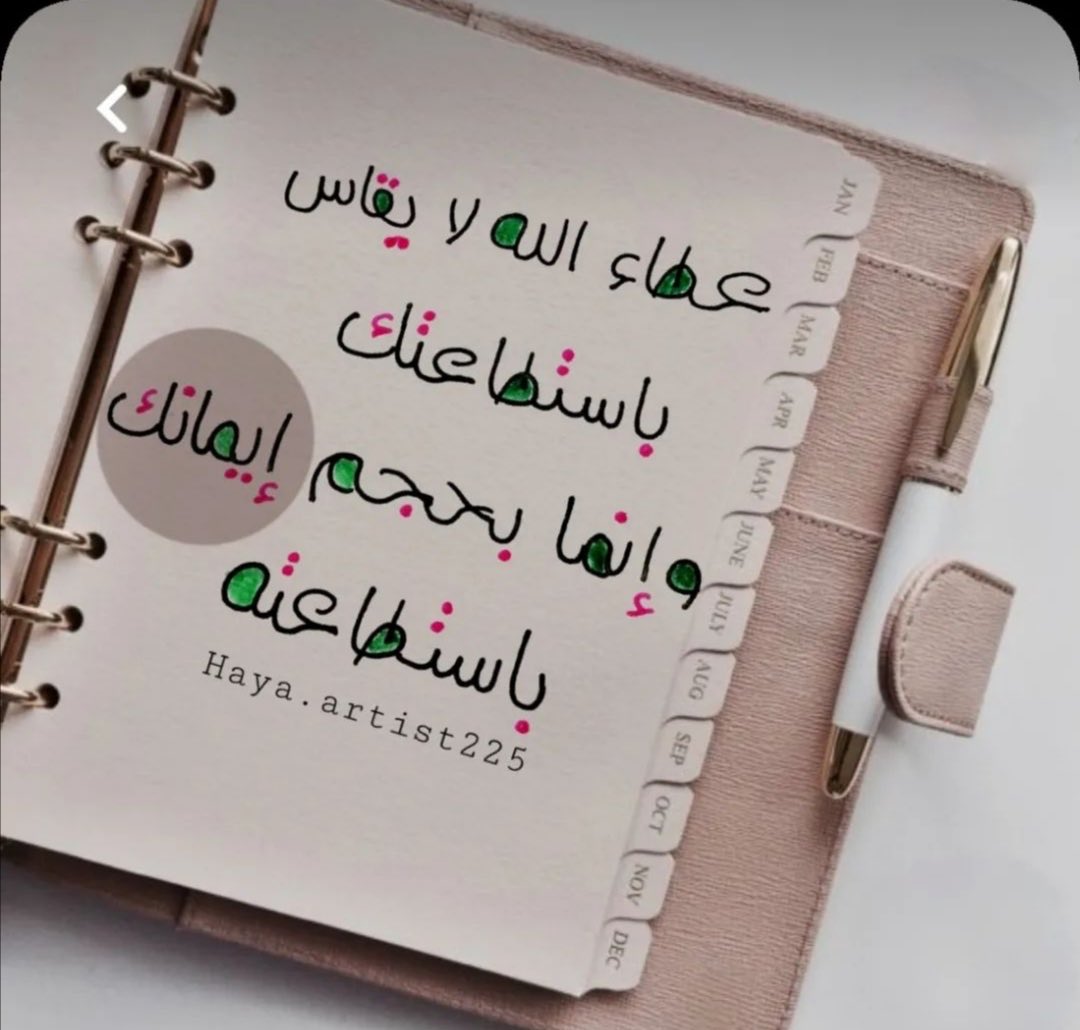 عطاء الله لا يقاس
باستطاعتك
وإنما بحجم إيمانك
باستطاعته
Haya.artist225
JAN
FEB
MAR
APR
MAY
JUNE
JULY
AUG
SEP
OCT
NOV
DEC